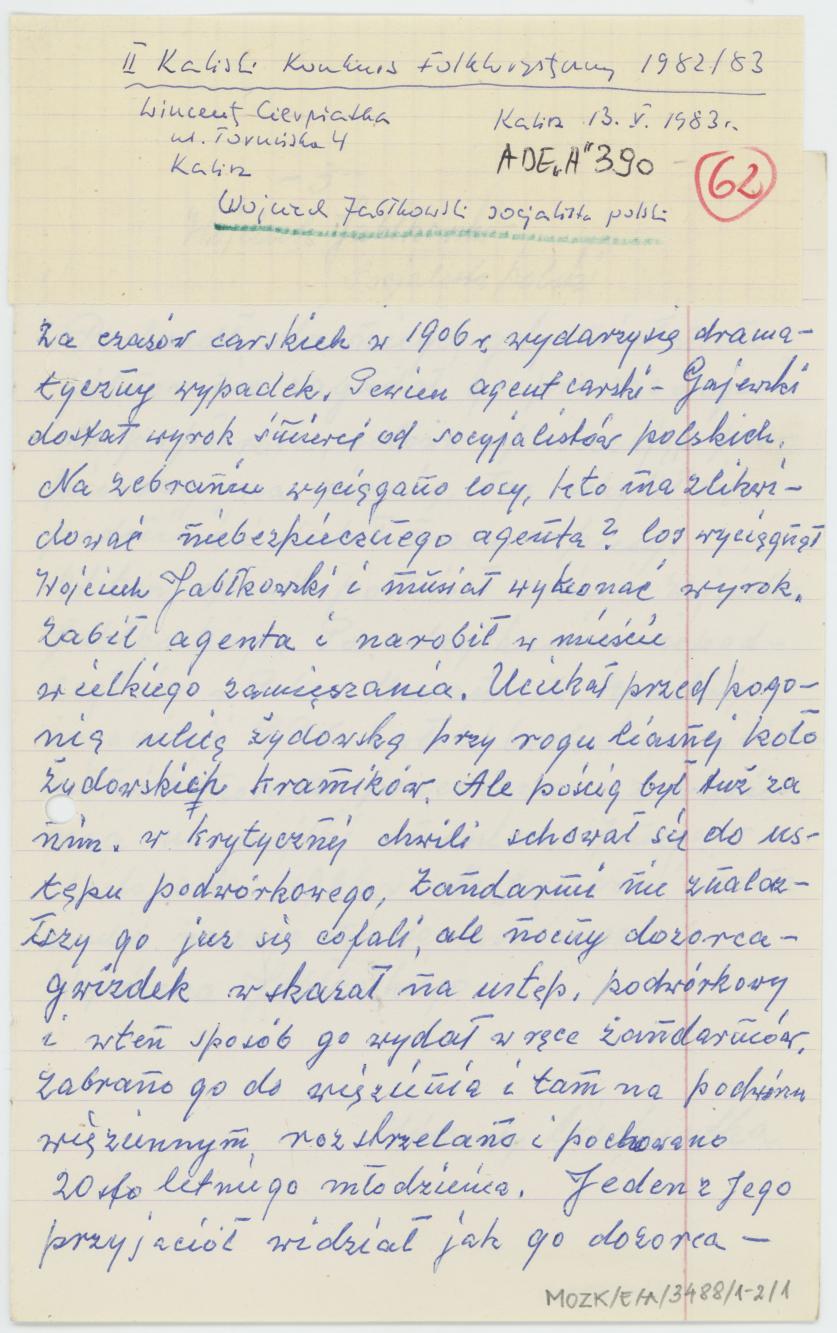 II Kaliski Konkurs Folklorystyczny 1982/83
Wincenty Cierpiałka
ul. Toruńska 4
Kalisz
Kalisz 13. V. 1983 r.
ADE „A" 390
62
Wojciech Jabłkowski socjalista polski
Za czasów carskich w 1906 r. wydarzysię drama-
tyczny wypadek. Pewien agent carski - Gajewski
dostał wyrok śmierci od socyjalistów polskich.
Na zebraniu wyciągano losy, kto ma zlikwi-
dować niebezpiecznego agenta? los wyciągnął
Wojciech Jabłkowski i musiał wykonać wyrok.
Zabił agenta i narobił w mieście
wielkiego zamięszania. Uciekał przed pogo-
nią ulicą Żydowską przy rogu Ciasnej koło
Żydowskich kramików. Ale pościg był tuż za
nim. w krytycznej chwili schował się do us-
tępu podwórkowego, Żandarmi nie znalaz-
łszy go już się cofali, ale nocny dozorca -
gwizdek wskazał na ustęp. podwórkowy
i wten sposób go wydał w ręce żandarmów.
Zabrano go do więzienia i tam na podwórzu
więziennym rozstrzelano i pochowano
20sto letniego młodzieńca. Jeden z Jego
przyjaciół widział jak go dozorca -
MOZK/E/A/3488/1-2/1